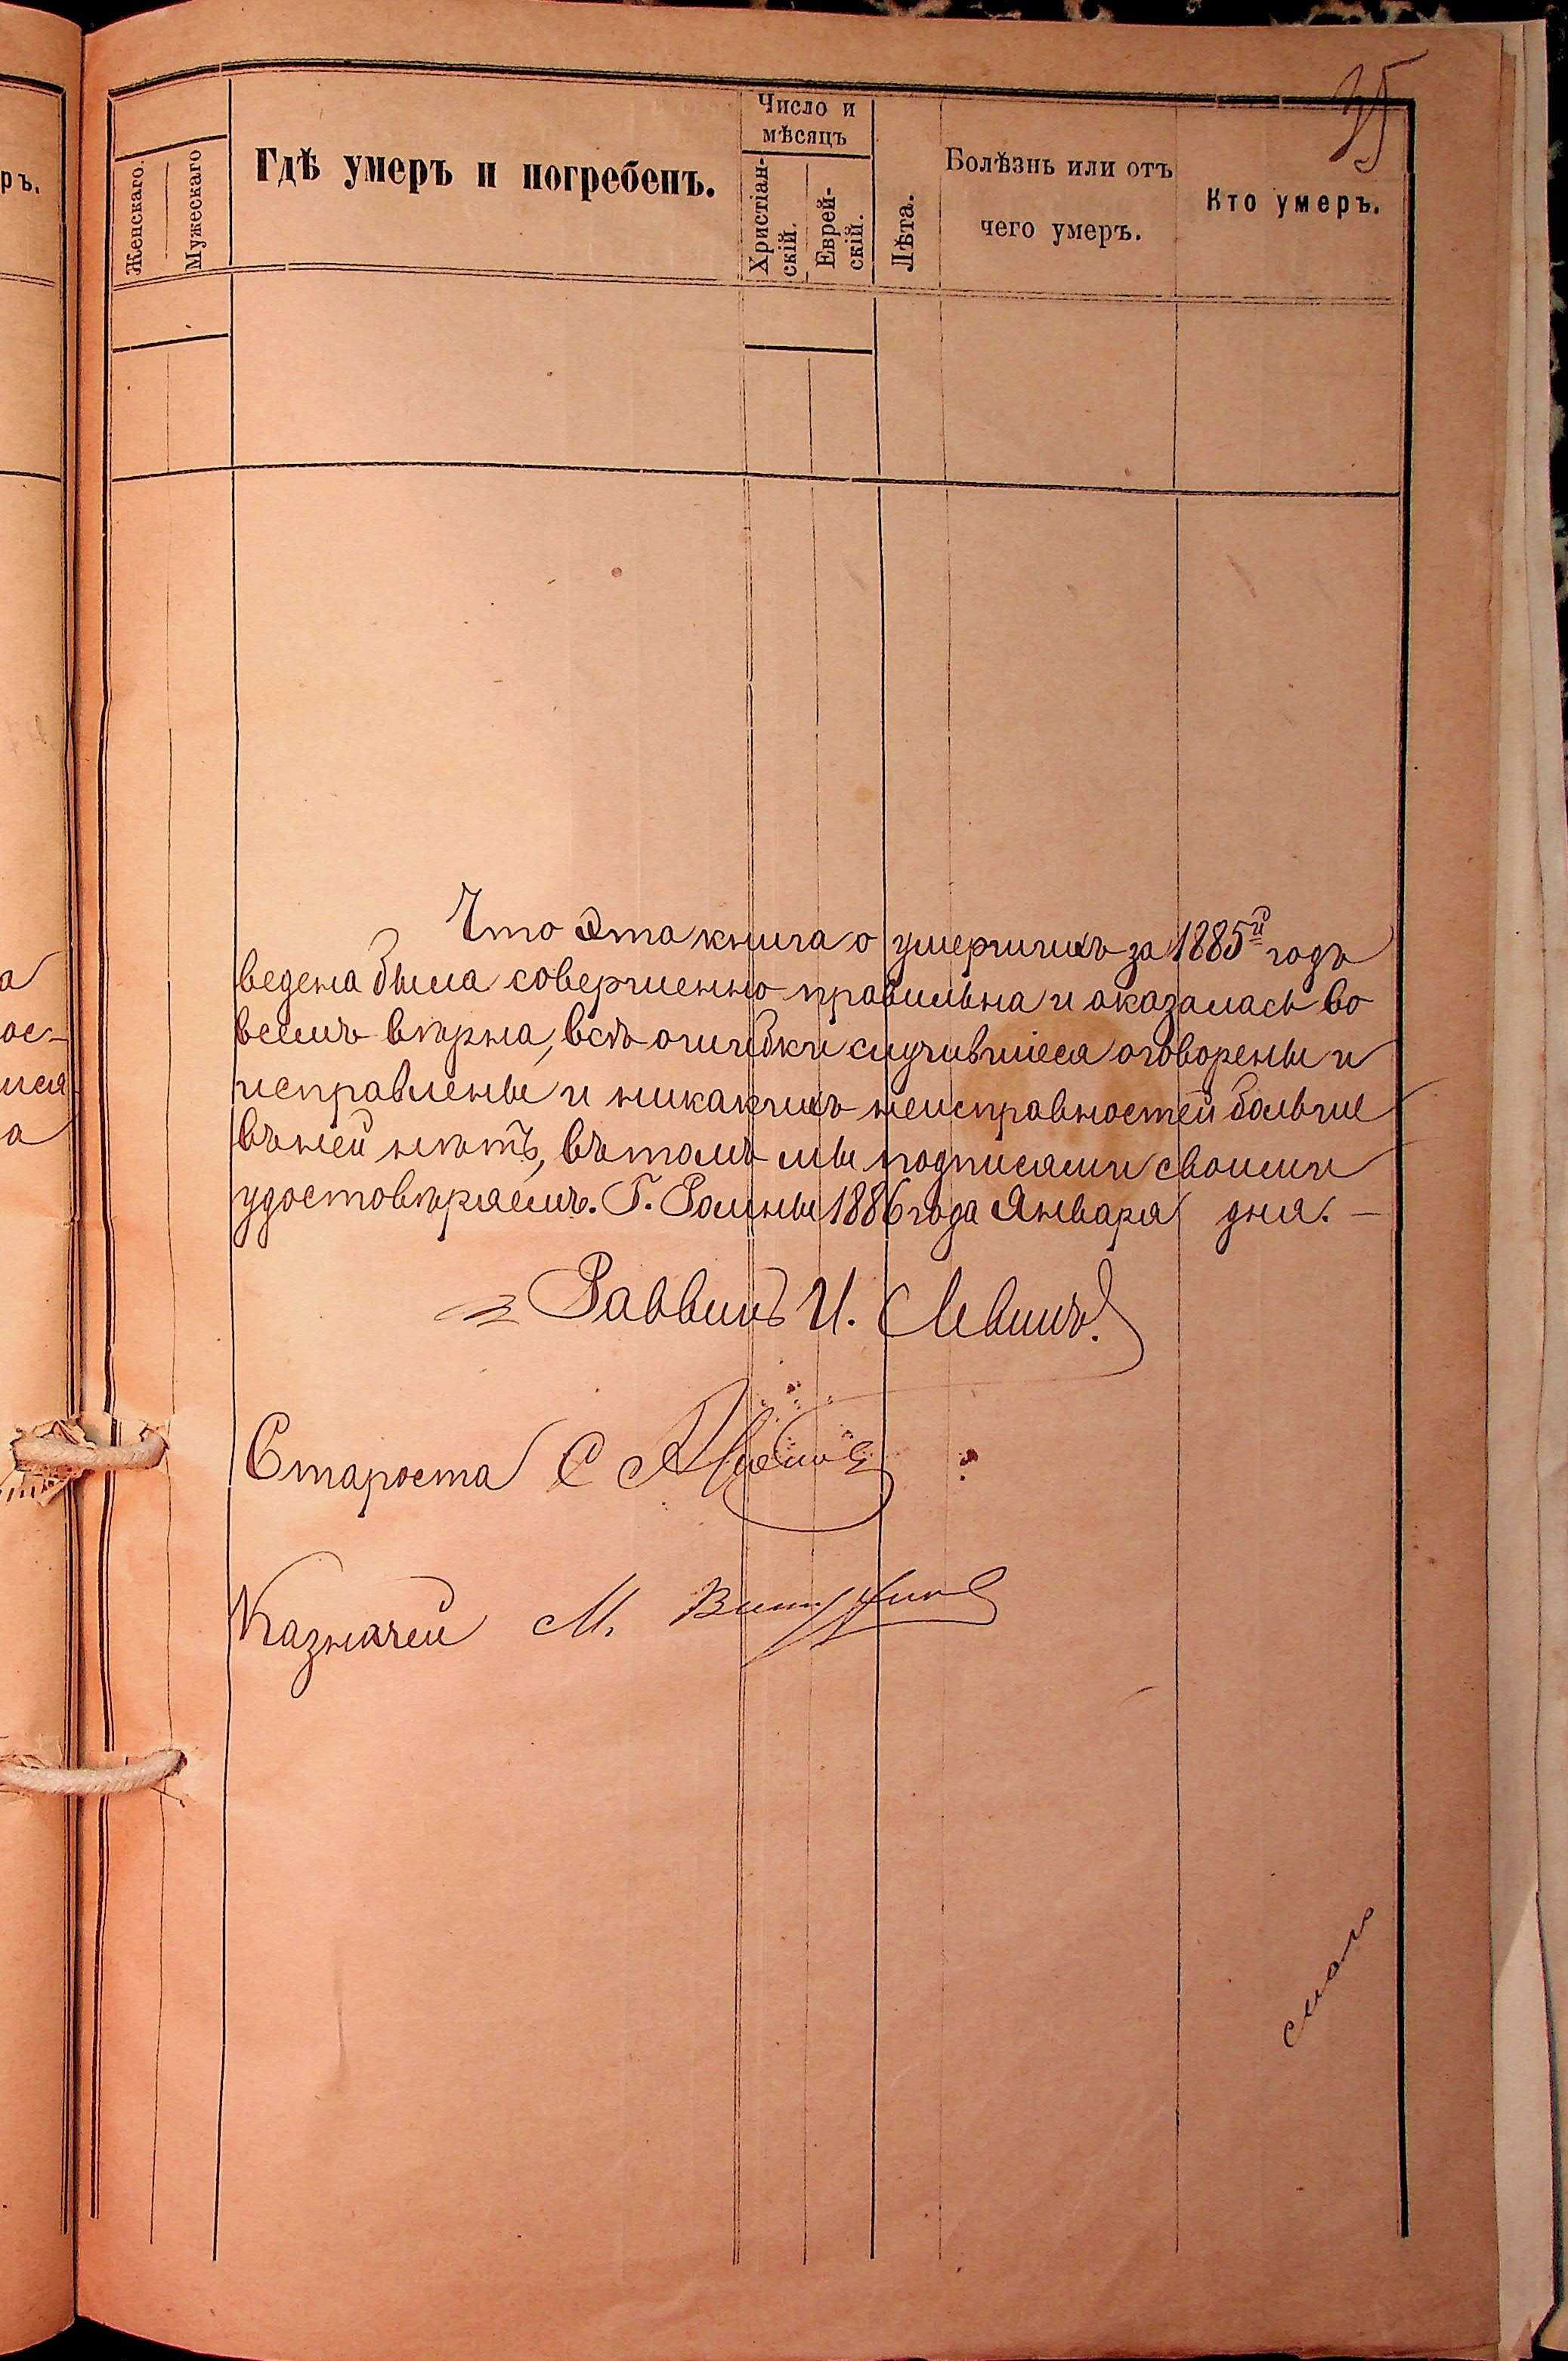 35
Женскаго.
Мужескаго
Гдѣ умеръ и погребенъ.
Число и
мѣсяцъ
Христіан-
скій.
Еврей-
скій.
Лѣта.
Болѣзнь или отъ
чего умеръ.
Кто умеръ.
ръ.
Что эта книга о умершихъ за 1885й годъ
ведена была совершенно правильна и аказалась во
всемъ вѣрна, всѣ ошибки случившіеся оговорены и
исправлены и никакихъ неисправностей больше
въ ней нѣтъ, въ томъ мы подписями своими
удостовѣряемъ. Г. Ромны 1886 года Января дня. —
Раввинъ И. Левинъ.
Староста С
Казначей М.